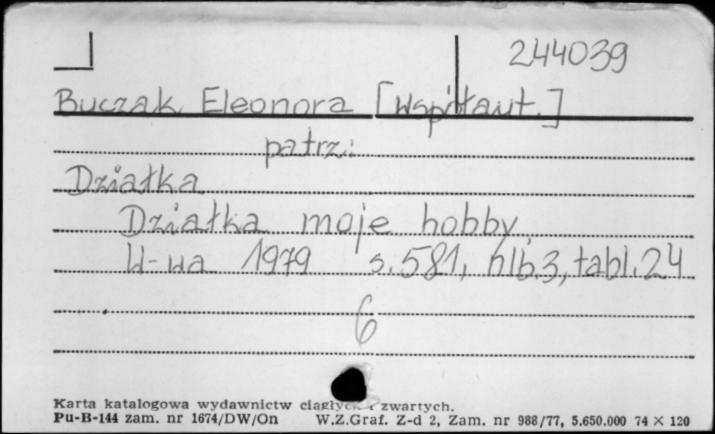 244039
Buczak Eleonora [Współaut.]
patrz:
Działka
Działka moje hobby
W-wa 1979 s. 581, nlb. 3, tabl. 24
6
Karta katalogowa wydawnictw ciągłych i zwartych.
Pu-B-144 zam. nr 1674/DW/On W.Z.Graf. Z-d 2, Zam. nr 988/77, 5.650.000 74 × 120